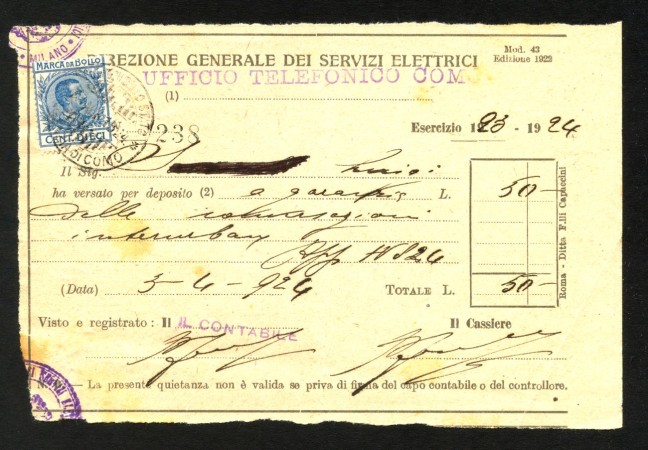 MILANO
Mod. 43
Edizione 1922
REZIONE GENERALE DEI SERVIZI ELETTRICI
MARCA DA BOLLO
CENT. DIECI
DI COMO
UFFICIO TELEFONICO COM
(1)
238
Esercizio 1923 - 1924
Il Sig. Luigi
ha versato per deposito (2) a garanzia L. 50-
delle conversazioni
interurban
App N 824
(Data) 3-4-924 TOTALE L. 50-
Roma - Ditta F.lli Capaccini
Visto e registrato: Il IL CONTABILE
Il Cassiere
N. — La presente quietanza non è valida se priva di firma del capo contabile o del controllore.